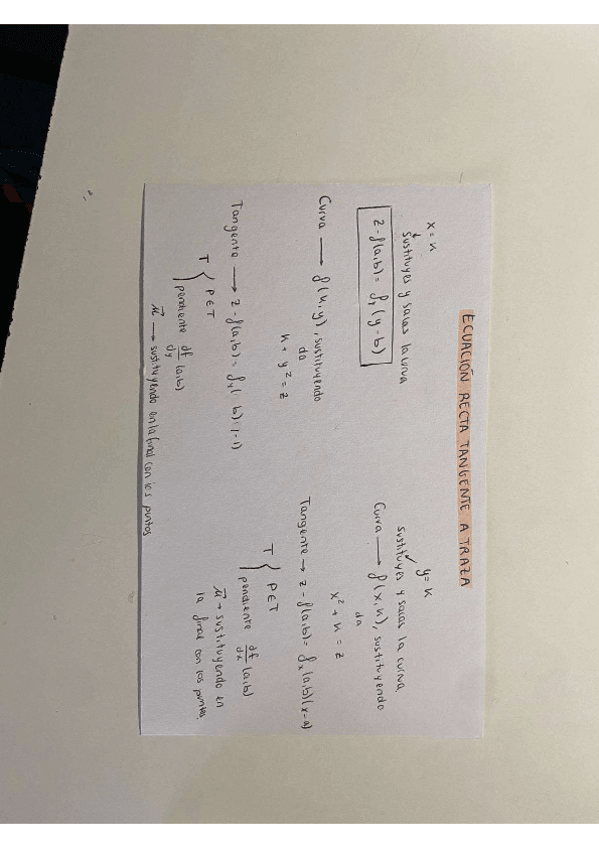 ECUACIÓN RECTA TANGENTE A TRAZA
x = k
↓
Sustituyes y sacas la curva
z - f(a,b) = fy (y-b)
Curva → f(k,y), sustituyendo
da
k + y² = z
Tangente → z - f(a,b) = fy(
T { P ∈ T
pendiente df/dy (a,b)
→ sustituyendo en la final con los puntos
y = k
sustituyes y sacas la curva
Curva → f(x,k), sustituyendo
da
x² + k = z
Tangente → z - f(a,b) = fx (a,b)(x-a)
T { P ∈ T
pendiente df/dx (a,b)
→ sustituyendo en
la final con los puntos